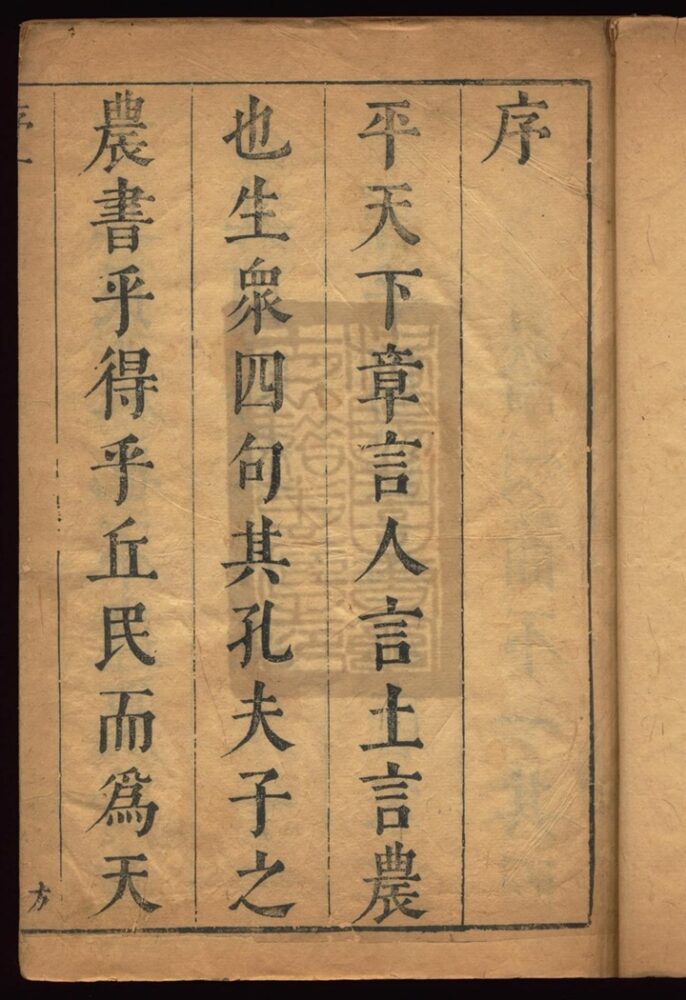 序
平天下章言人言土言農
也生衆四句其孔夫子之
農書乎得乎丘民而爲天
方